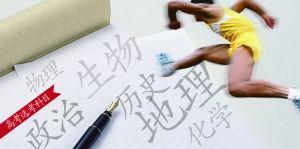 物理
生物
高考选考科目
政治
历史
地理
化学